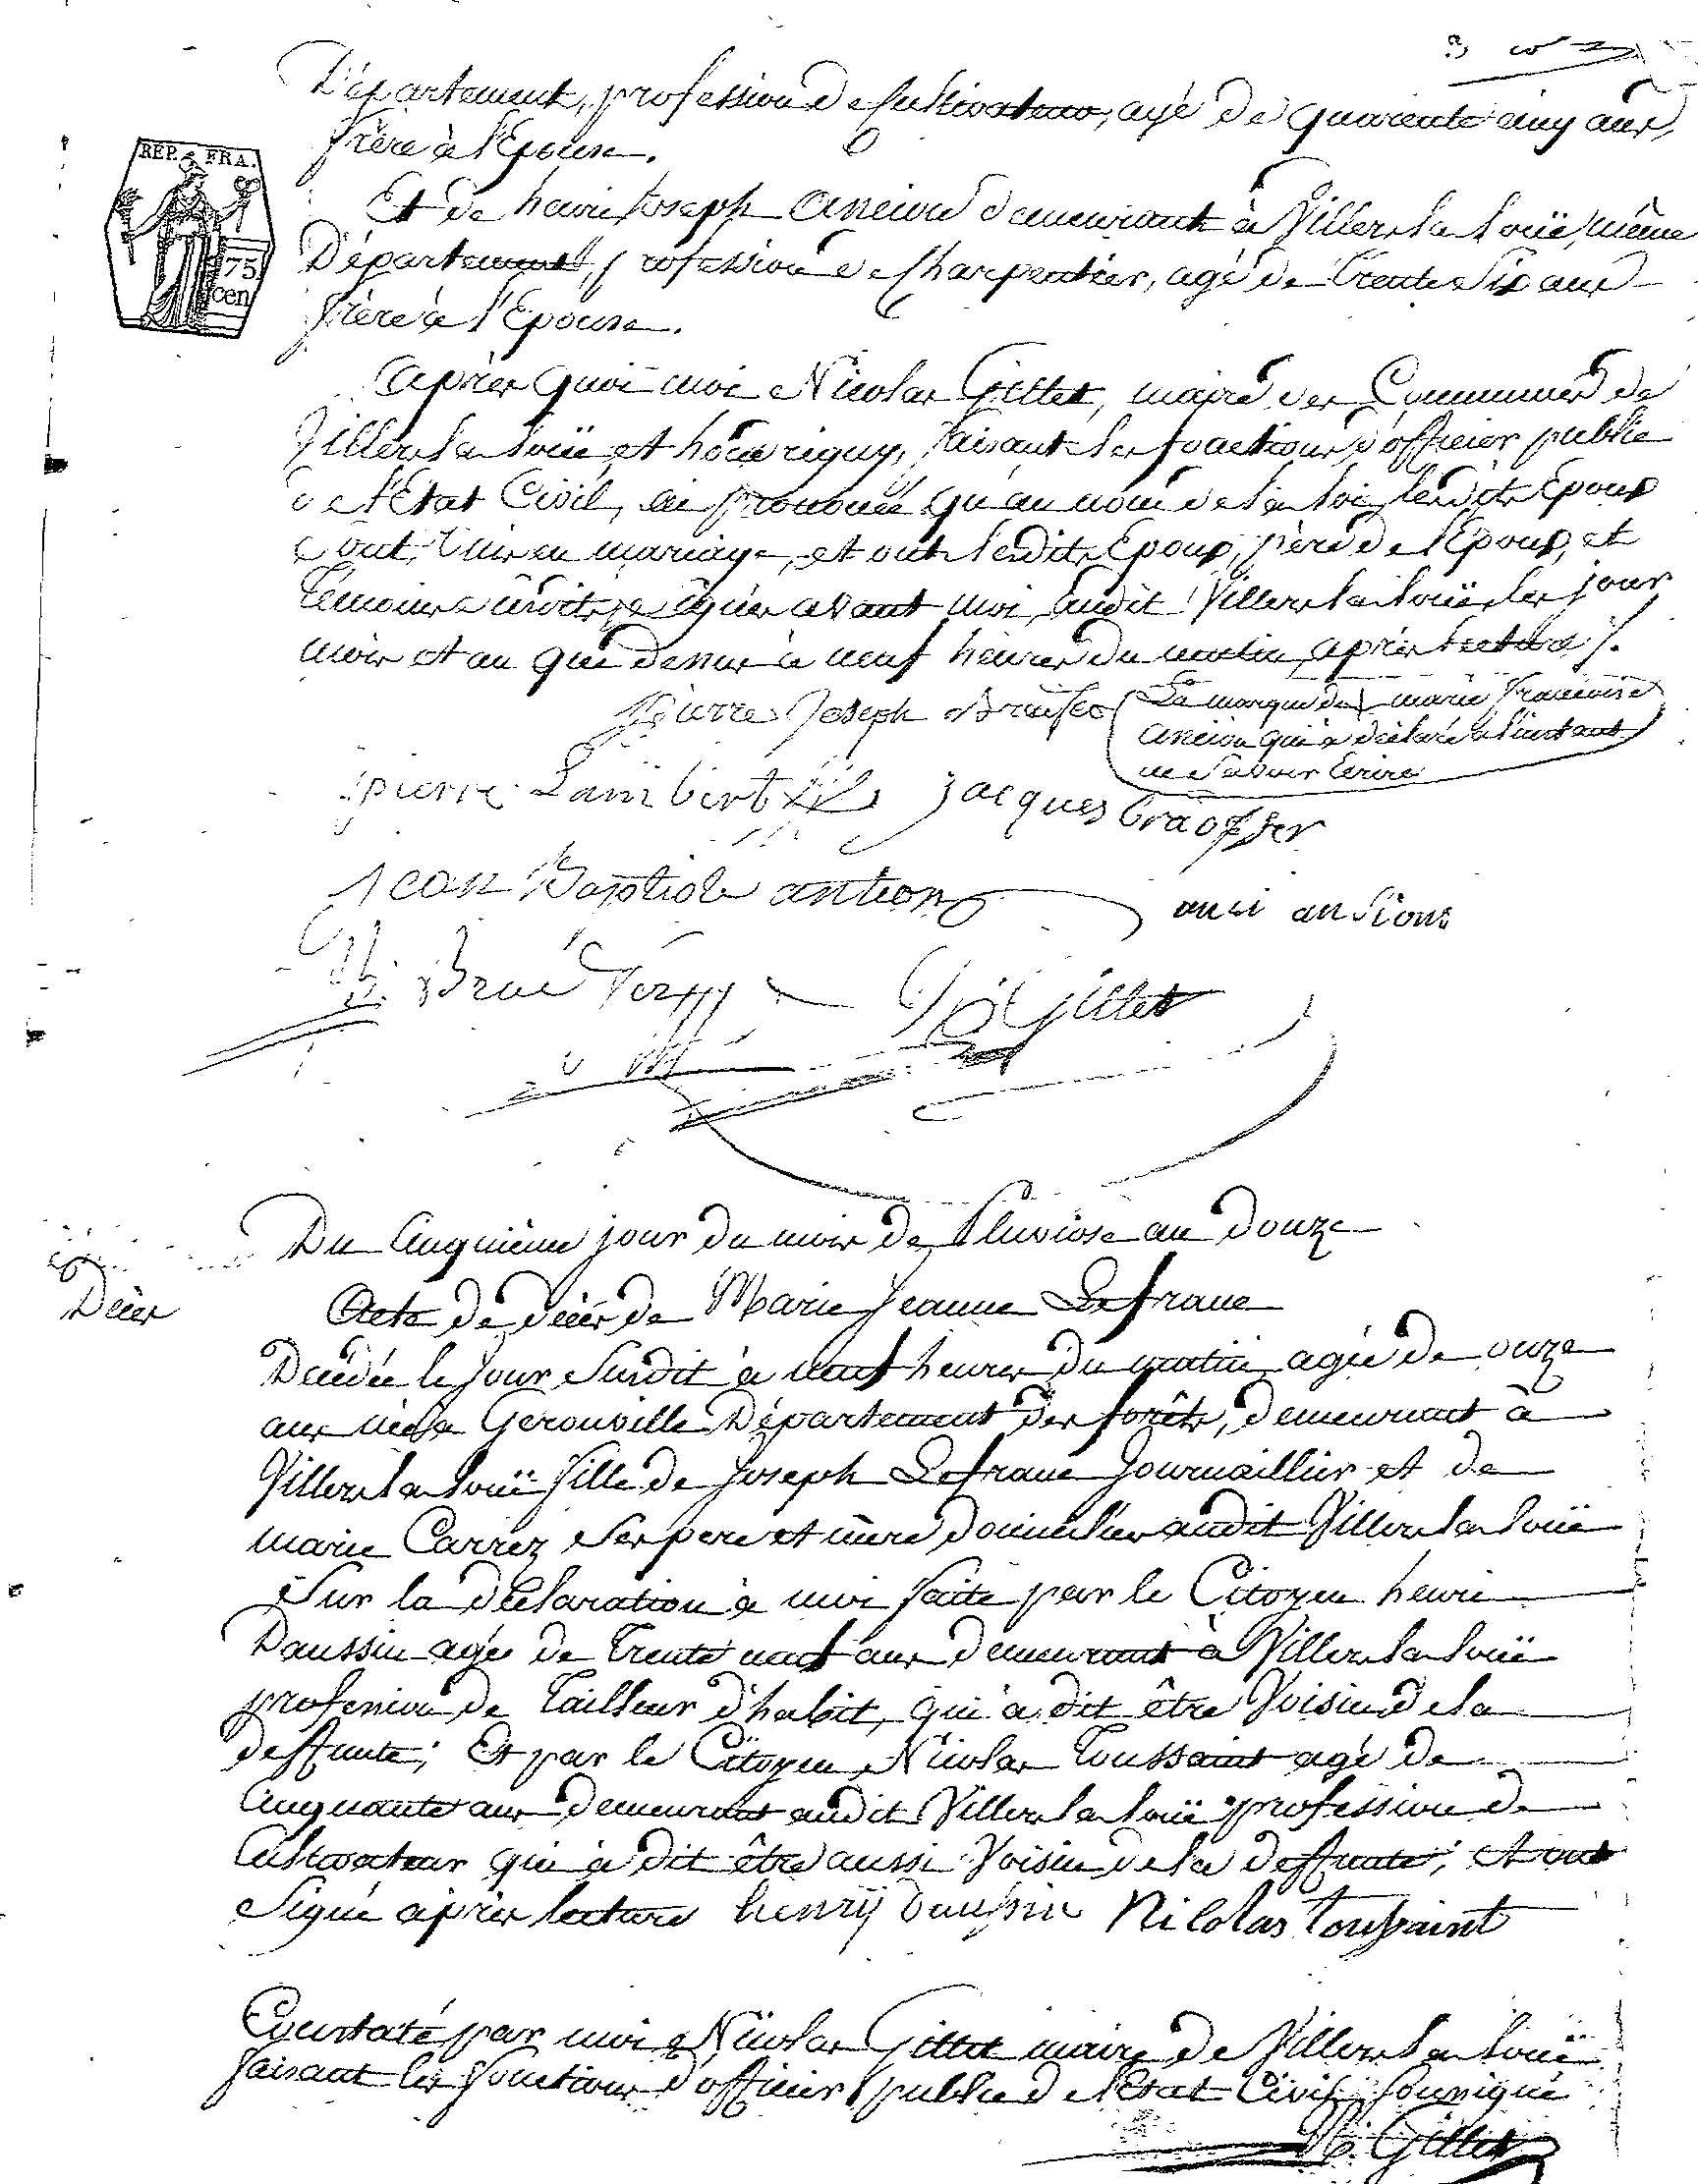 Département, profession de Cultivateur, agé de quarente cinq ans,
frère à l'Epouse.
REP. FRA.
75
cen
Et de henri Joseph Ancion demeurant à Villers la Loüe, même
Département, profession de Charpentier, agé de trente six ans
frère à l'Epouse.
Après quoi moi Nicolas Gillet, maire des Communes de
Villers la Loüe et houdrigny, faisant les fonctions d'officier public
de l'Etat Civil, ai prononcé qu'au nom de la loi, lesdits Epoux
sont unis en mariage, et ont lesdits Epoux, père de l'Epoux, et
témoins avant moi, audit Villers la Loüe les jour
mois et an que dessus à neuf heures du matin, après lecture /.
Pierre Joseph
La marque de marie françoise
Ancion qui a déclaré à l'instant
ne Savoir Ecrire
pierre Lambert jacques
jean Baptiste antion
N. Gillet
Du Cinquième jour du mois de Pluviose an douze
Décès
Acte de décès de Marie Jeanne Lefranc
Décédée le jour Susdit à neuf heures du matin agée de onze
ans née à Gerouville Département des forêts, demeurant à
Villers la Loüe fille de Joseph Lefranc Journaillier et de
marie Carrez Ses pere et mère domiciliés audit Villers la Loüe
Sur la déclaration à moi faite par le Citoyen henri
Daussin agée de trente neuf ans demeurant à Villers la Loüe
profession de tailleur d'habit, qui a dit être Voisin de la
deffunte; Et par le Citoyen Nicolas Toussaint agé de
Cinquante ans demeurant audit Villers la Loüe profession de
Cultivateur qui à dit être aussi Voisin de la deffunte; et ont
Signé après lecture henry daussin Nicolas toussaint
Constaté par moi Nicolas Gillet maire de Villers la Loüe
faisant les fonctions d'officier public de l'Etat Civil Sousigné
N. Gillet